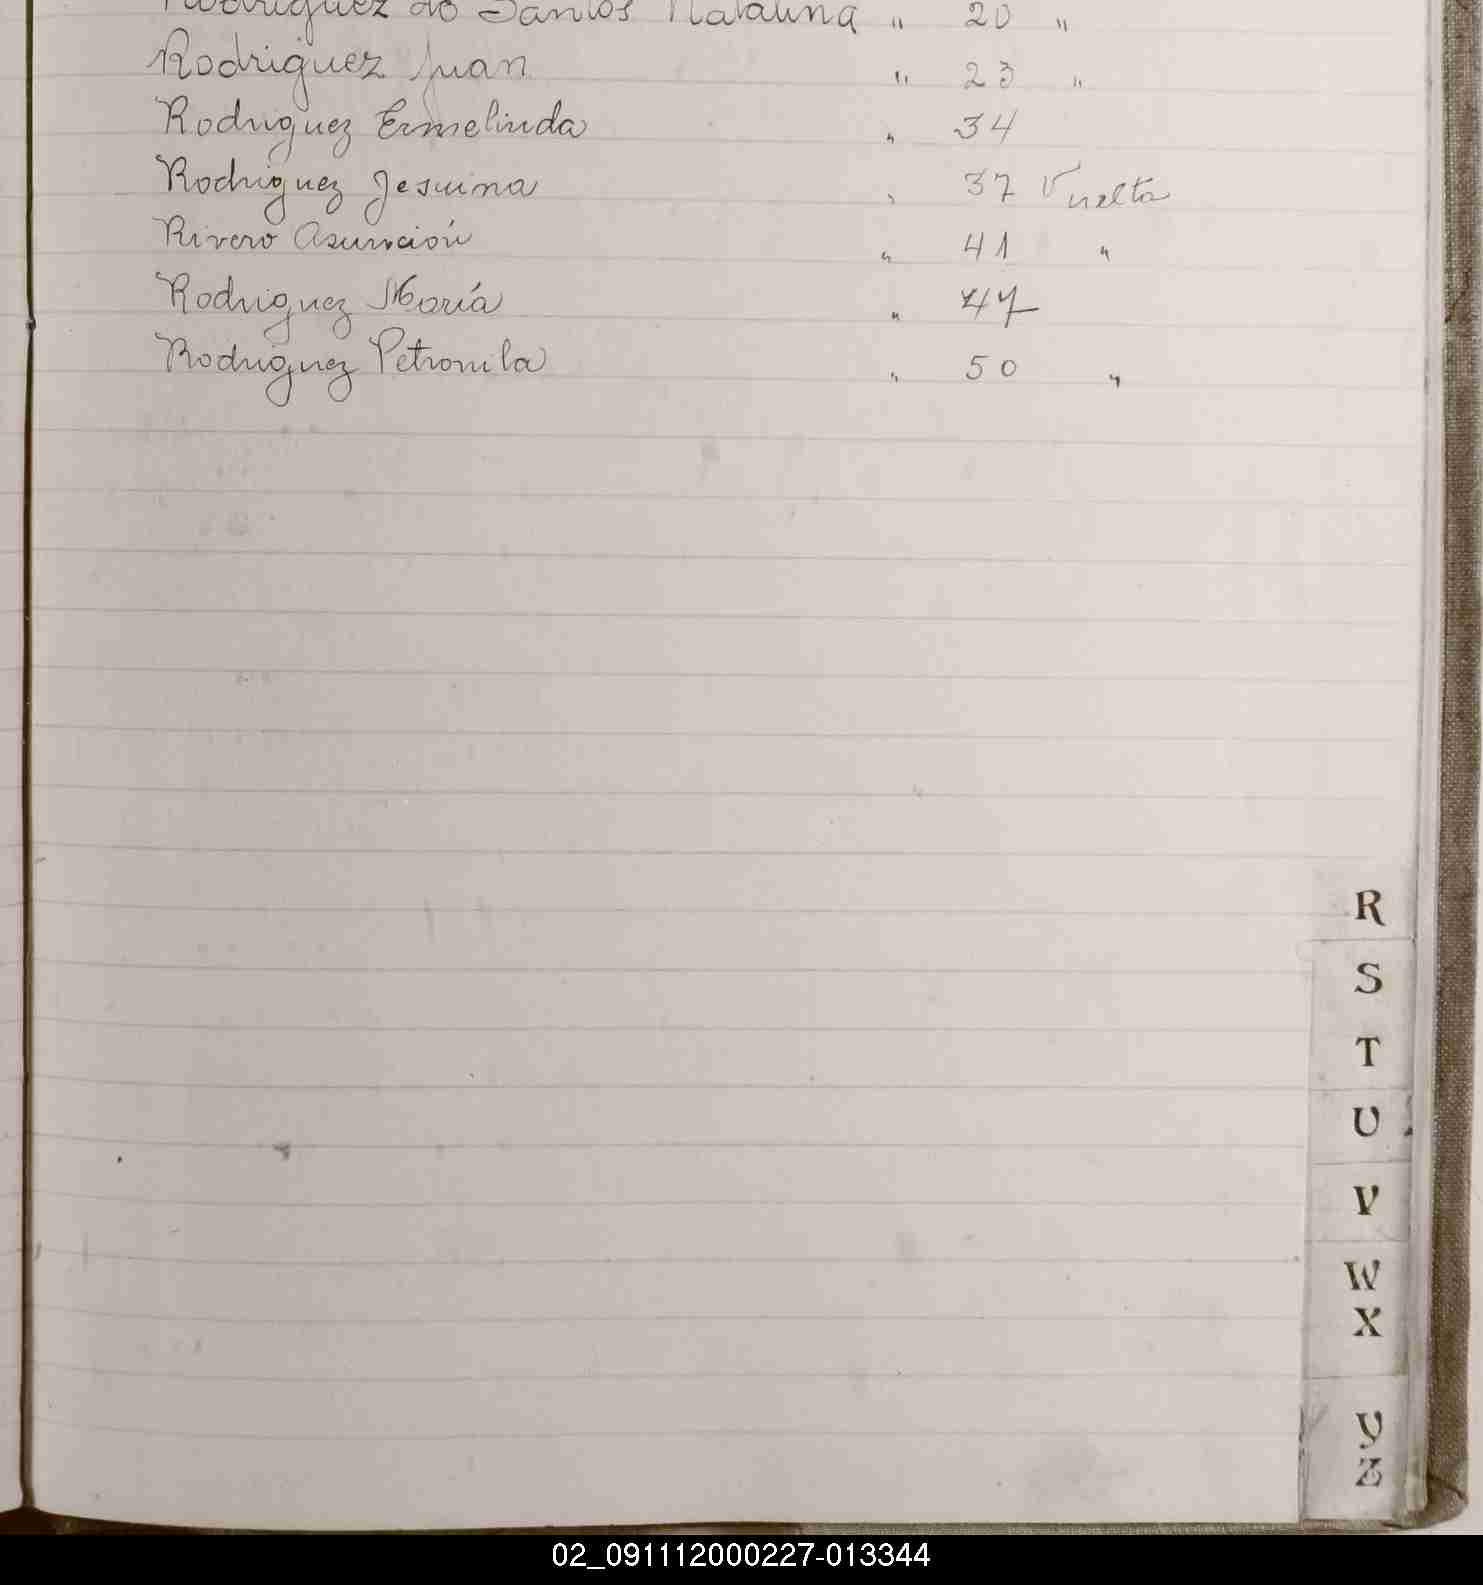 Rodriguez do Santos Natalina " 20 "
Rodriguez Juan " 23 "
Rodriguez Ermelinda " 34
Rodriguez Jesuina " 37 Vuelta
Rivero Asunción " 41 "
Rodriguez María " 47
Rodriguez Petronila " 50 "
R
S
T
U
V
W
X
Y
Z
02_091112000227-013344